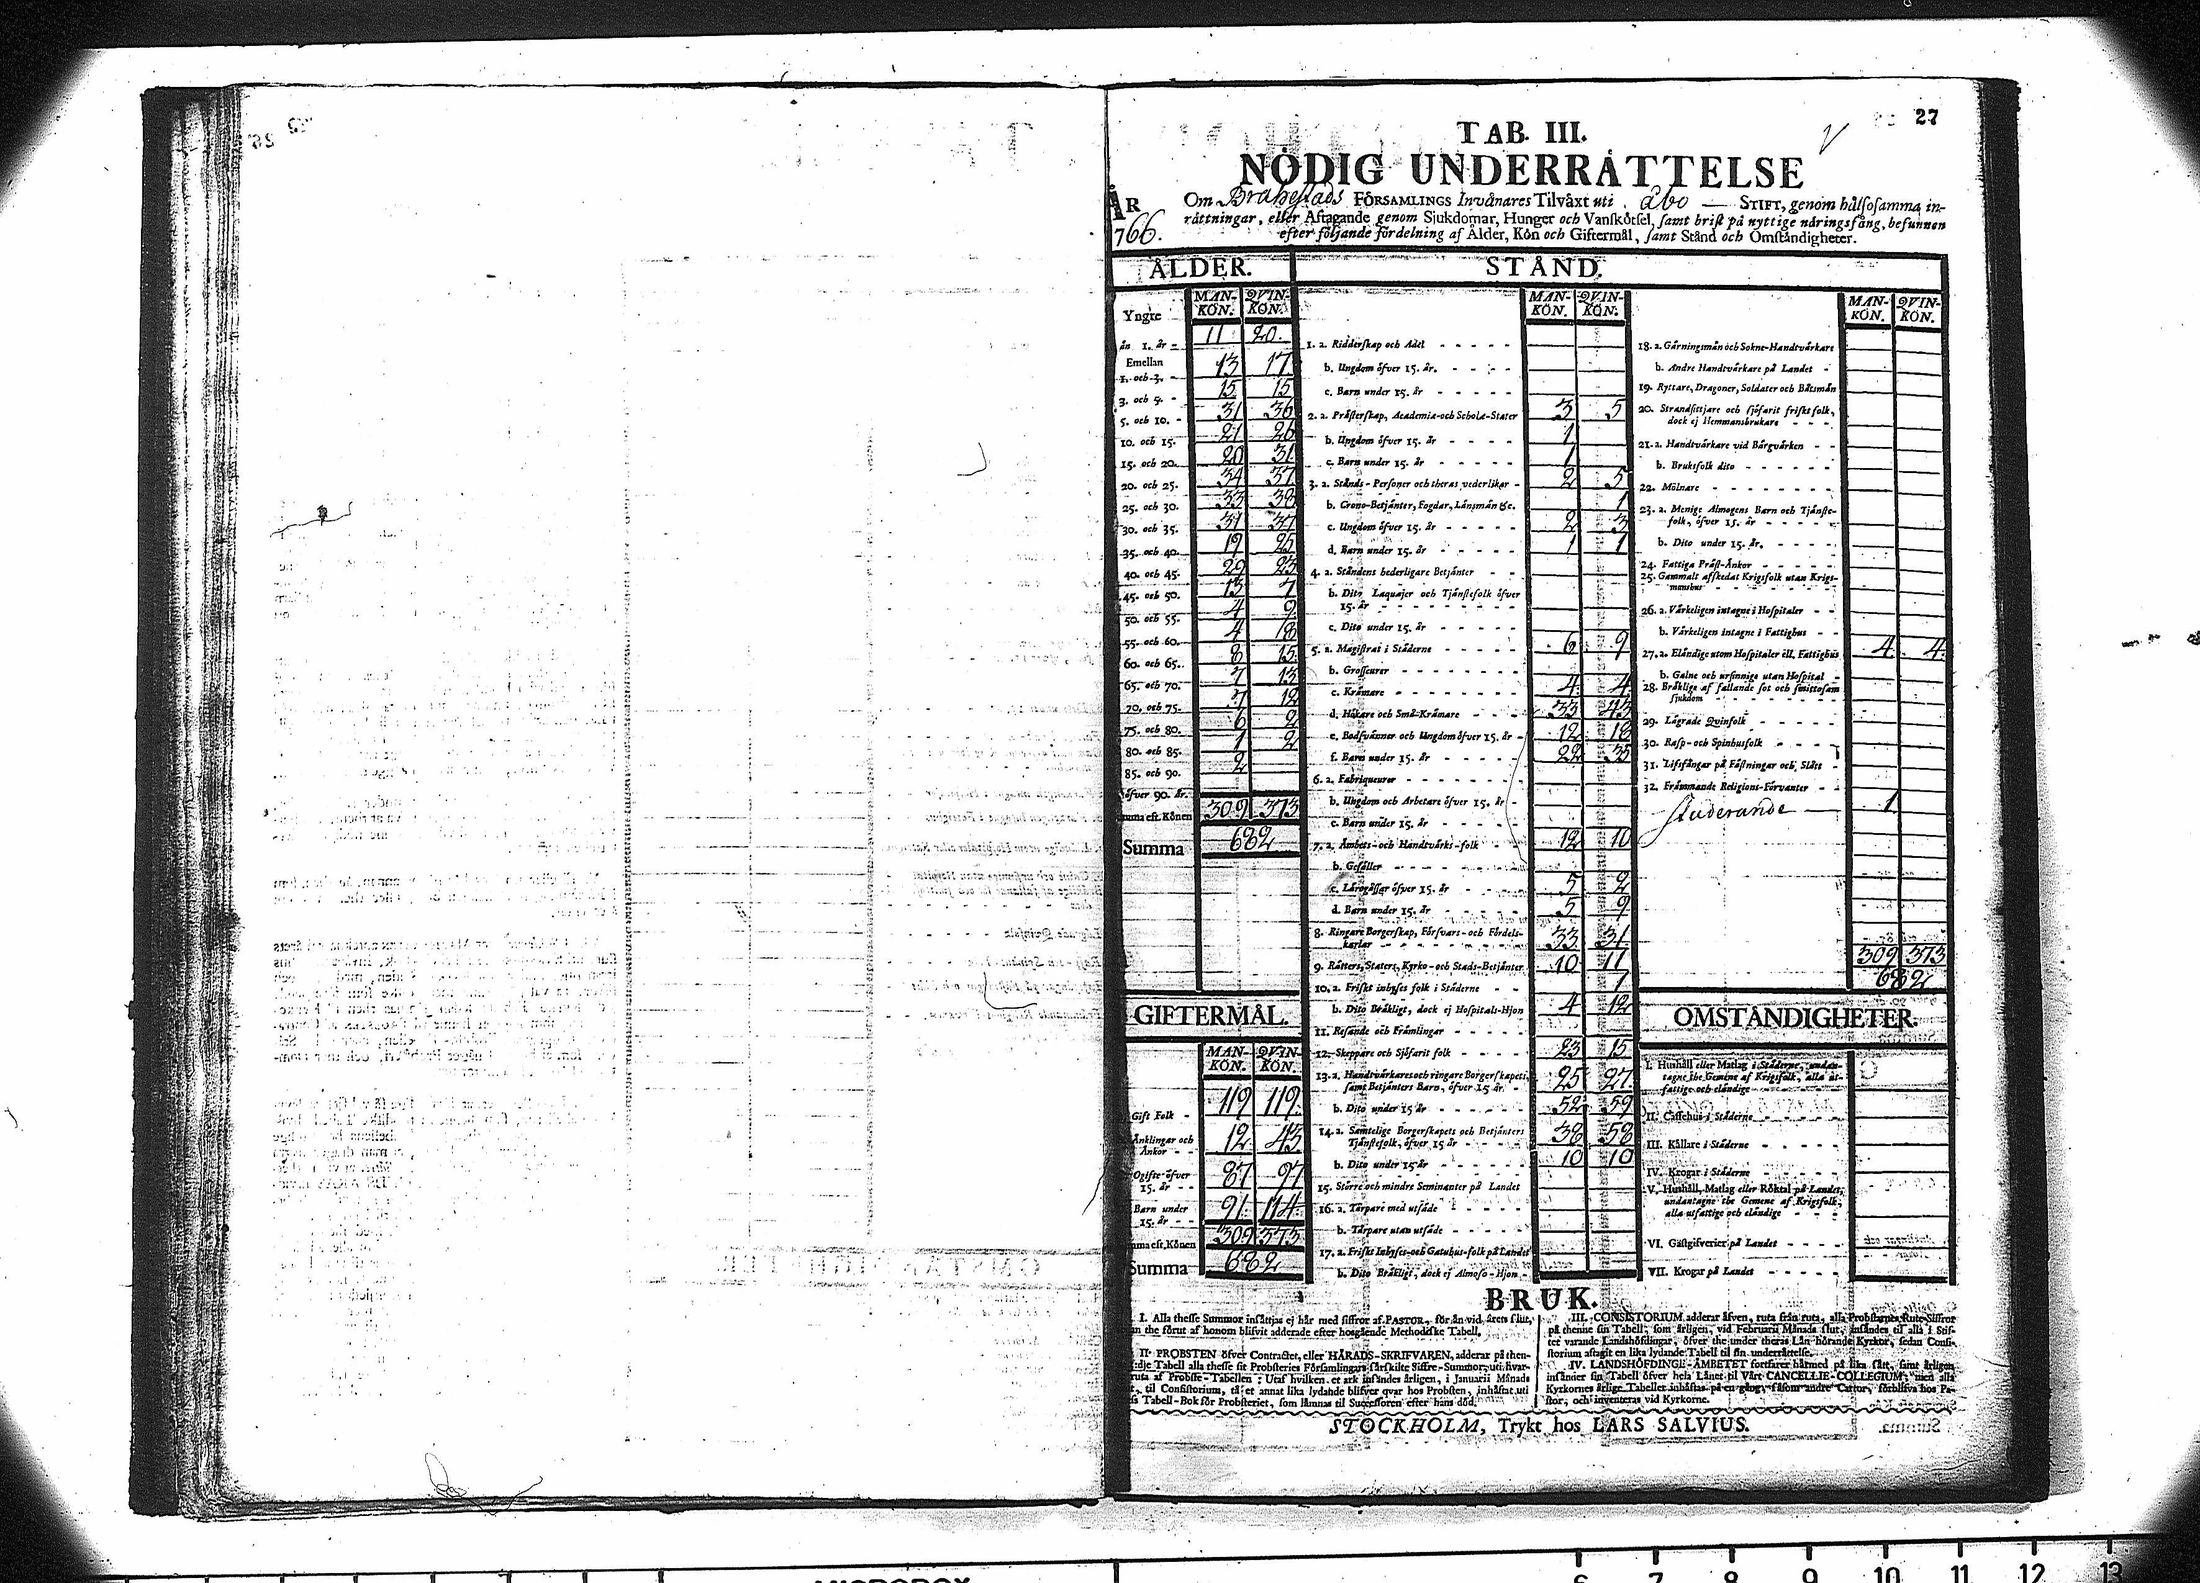 27
TAB. III.
NÖDIG UNDERRÅTTELSE
ÅR
766.
Om Brahestads FÖRSAMLINGS Invånares Tilväxt uti Åbo — STIFT, genom hälsosamma in-
råttningar, eller Aftagande genom Sjukdomar, Hunger och Vanskötsel, samt brist på nyttige näringsfång, befunnen
efter följande fördelning af Ålder, Kön och Giftermål, samt Stånd och Omständigheter.
ÅLDER.
MAN-KÖN. QVIN-KÖN.
Yngre än 1. år - 11 20.
Emellan 1. och 3. - 13 17
3. och 5. - 15 15
5. och 10. - 31 36
10. och 15. 21 26
15. och 20. 20 31
20. och 25. 34 37
25. och 30. 33 38
30. och 35. 31 37
35. och 40. 19 25
40. och 45. 29 23
45. och 50. 13 7
50. och 55. 4 9
55. och 60. 4 18
60. och 65. 8 15
65. och 70. 7 13
70. och 75. 7 12
75. och 80. 6 2
80. och 85. 1 2
85. och 90. 2
öfver 90. år.
mma eft. Könen 309 373
Summa 682
GIFTERMÅL.
MAN-KÖN. QVIN-KÖN.
Gift Folk - 119 119
Änklingar och Änkor - 12 43
Ogifte öfver 15. år - 87 97
Barn under 15. år - 91 114
mma eft. Könen 309 373
Summa 682
STÅND.
MAN-KÖN. QVIN-KÖN.
1. a. Ridderskap och Adel
b. Ungdom öfver 15. år.
c. Barn under 15. år
2. a. Prästerskap, Academiæ-och Scholæ-Stater 3 5
b. Ungdom öfver 15. år 1
c. Barn under 15. år 1
3. a. Stånds-Personer och theras vederlikar - 2 5
b. Crono-Betjänter, Fogdar, Länsmän &c. 1
c. Ungdom öfver 15. år 2 3
d. Barn under 15. år 1 1
4. a. Ståndens hederligare Betjänter
b. Dito Laquajer och Tjänstefolk öfver 15. år
c. Dito under 15. år
5. a. Magistrat i Städerne 6 9
b. Grosseurer
c. Krämare 4 4
d. Hökare och Små-Krämare 33 43
e. Bodsvänner och Ungdom öfver 15. år - 12 18
f. Barn under 15. år 22 35
6. a. Fabriqueurer
b. Ungdom och Arbetare öfver 15. år -
c. Barn under 15. år
7. a. Ämbets-och Handtvärks-folk 12 10
b. Gesäller
c. Lärogåssar öfver 15. år 5 2
d. Barn under 15. år 5 9
8. Ringare Borgerskap, Försvars-och Fördels-karlar 33 31
9. Rätters, Staters, Kyrko-och Stads-Betjänter 10 11
10. a. Friskt inhyses folk i Städerne - 1
b. Dito Bräkligt, dock ej Hospitals-Hjon 4 12
11. Resande och Främlingar
12. Skeppare och Sjöfarit folk 23 15
13. a. Handtvärkares och ringare Borgerskapets, samt Betjänters Barn, öfver 15 år - 25 27
b. Dito under 15 år 52 59
14. a. Samtelige Borgerskapets och Betjänters Tjänstefolk, öfver 15 år 38 58
b. Dito under 15 år 10 10
15. Större och mindre Seminanter på Landet
16. a. Torpare med utsäde
b. Torpare utan utsäde
17. a. Friskt Inhyses-och Gatuhus-folk på Landet
b. Dito Bräkligt, dock ej Almoso-Hjon
MAN-KÖN. QVIN-KÖN.
18. a. Gärningsmän och Sokne-Handtvärkare
b. Andre Handtvärkare på Landet
19. Ryttare, Dragoner, Soldater och Båtsmän
20. Strandsittjare och sjöfarit friskt folk, dock ej Hemmansbrukare
21. a. Handtvärkare vid Bärgvärken
b. Bruksfolk dito
22. Mölnare
23. a. Menige Almogens Barn och Tjänstefolk, öfver 15. år
b. Dito under 15. år.
24. Fattiga Präst-Änkor
25. Gammalt affskedat Krigsfolk utan Krigsmanshus
26. a. Värkeligen intagne i Hospitaler
b. Värkeligen intagne i Fattighus
27. a. Eländige utom Hospitaler ell. Fattighus 4 4
b. Galne och ursinnige utan Hospital
28. Bräklige af fallande sot och smittosam sjukdom
29. Lägrade Qvinfolk
30. Rasp-och Spinhusfolk
31. Lifsfångar på Fästningar och Slått
32. Främmande Religions-Förvanter
Studerande 1
309 373
682
OMSTÄNDIGHETER.
I. Hushåll eller Matlag i Städerne, undantagne the Gemene af Krigsfolk, alla utfattige och eländige
II. Caffehus i Städerne
III. Källare i Städerne
IV. Krogar i Städerne
V. Hushåll, Matlag eller Röktal på Landet, undantagne the Gemene af Krigsfolk, alla utfattige och eländige
VI. Gästgifverier på Landet
VII. Krogar på Landet
BRUK.
I. Alla thesse Summor insättjas ej här med siffror af PASTOR, för än vid årets slut,
an the förut af honom blifvit adderade efter hosgående Methodiske Tabell.
II. PROBSTEN öfver Contractet, eller HÄRADS-SKRIFVAREN, adderar på then-
dje Tabell alla thesse sit Probsteries Församlingars särskilte Siffre-Summor, uti hvar-
ruta af Probste-Tabellen: Utaf hvilken et ark insändes årligen, i Januarii Månads
til Consistorium, tå et annat lika lydande blifver qvar hos Probsten, inhäftat uti
Tabell-Bok för Probsteriet, som lämnas til Successoren efter hans död.
III. CONSISTORIUM adderar åfven, ruta från ruta, alla Probstarnes Rute-Siffror
på thenne sin Tabell, som årligen, vid Februarii Månads slut, insändes til alla i Stif-
tet varande Landshöfdingar, öfver the under theras Län hörande Kyrkor, sedan Consi-
storium aftagit en lika lydande Tabell til sin underrättelse.
IV. LANDSHÖFDINGE-ÄMBETET fortfarer härmed på lika sätt, samt årligen
insänder sin Tabell öfver hela Länet til Vårt CANCELLIE-COLLEGIUM, men alla
Kyrkornes årlige Tabeller inhäftas på en gång, såsom andre Cartor, förblifva hos Pa-
stor, och inventeras vid Kyrkorne.
STOCKHOLM, Trykt hos LARS SALVIUS.
6 7 8 9 10 11 12 13